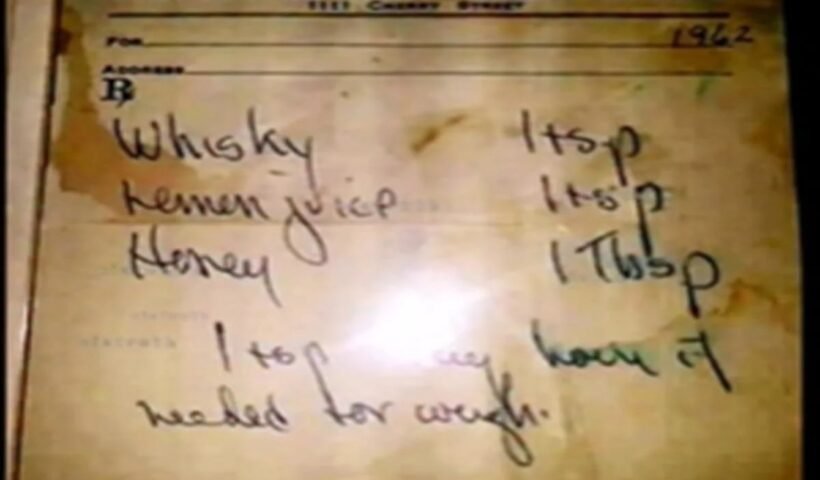 1111 CHERRY STREET
FOR 1962
ADDRESS
Rx
Whisky 1 tsp
Lemon juice 1 tsp
Honey 1 Tbsp
1 tsp hour if
needed for cough.